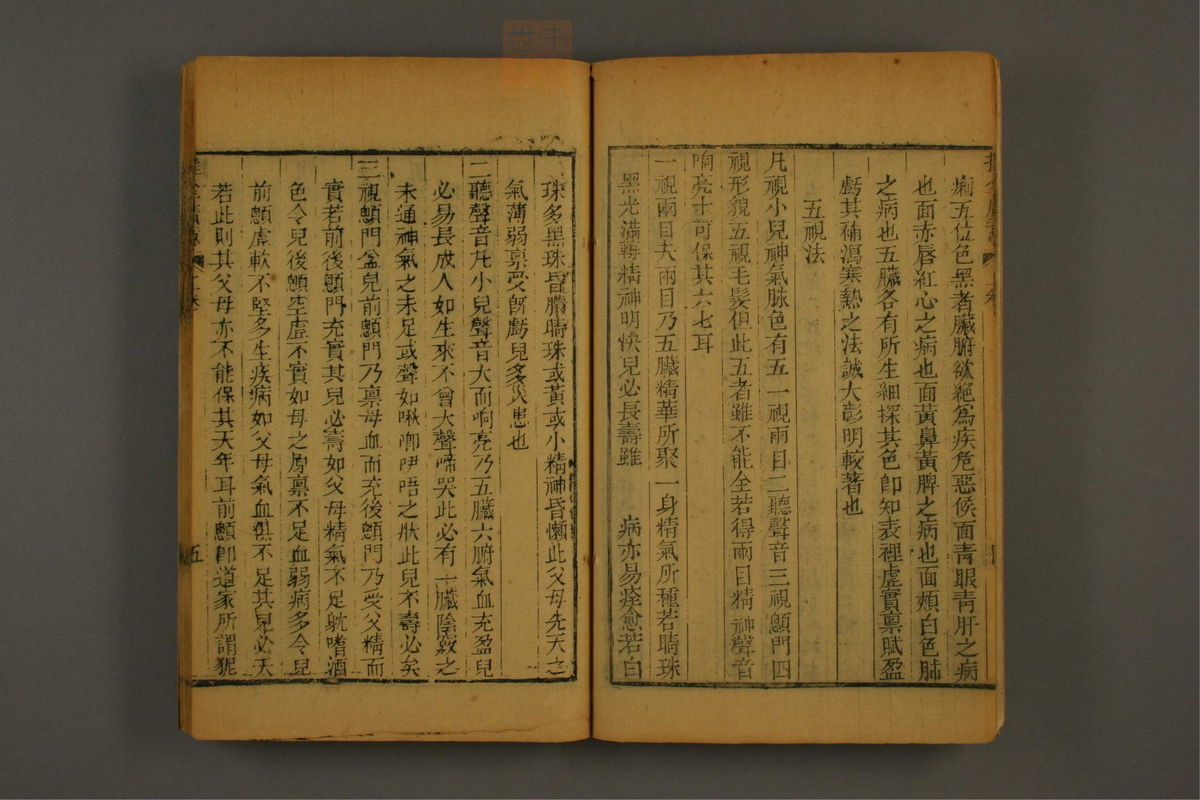 痢五位色黑者臟腑欲絕為疾危惡候面青眼青肝之病
也面赤唇紅心之病也面黃鼻黃脾之病也面頰白色肺
之病也五臟各有所生細探其色即知表裡虛實稟賦盈
虧其補瀉寒熱之法誠大彰明較著也
五視法
凡視小兒神氣脉色有五一視兩目二聽聲音三視顖門四
視形貌五視毛髮但此五者雖不能全若得兩目精神聲音
响亮十可保其六七耳
一視兩目夫兩目乃五臟精華所聚一身精氣所種若睛珠
黑光滿輪精神明快兒必長壽雖 病亦易痊愈若白
珠多黑珠昏朦睛珠或黃或小精神昏懶此父母先天之
氣薄弱禀受既虧兒多災患也
二聽聲音凡小兒聲音大而响亮乃五臟六腑氣血充盈兒
必易長成人如生來不曾大聲啼哭此必有一臟陰竅之
未通神氣之未足或聲如啾唧咿唔之狀此兒不壽必矣
三視顖門盆兒前顖門乃禀母血而充後顖門乃受父精而
實若前後顖門充實其兒必壽如父母精氣不足躭嗜酒
色令兒後顖空虛不實如母之原禀不足血弱病多令兒
前顖虛軟不堅多生疾病如父母氣血俱不足其兒必夭
若此則其父母亦不能保其天年耳前顖即道家所謂妮
五